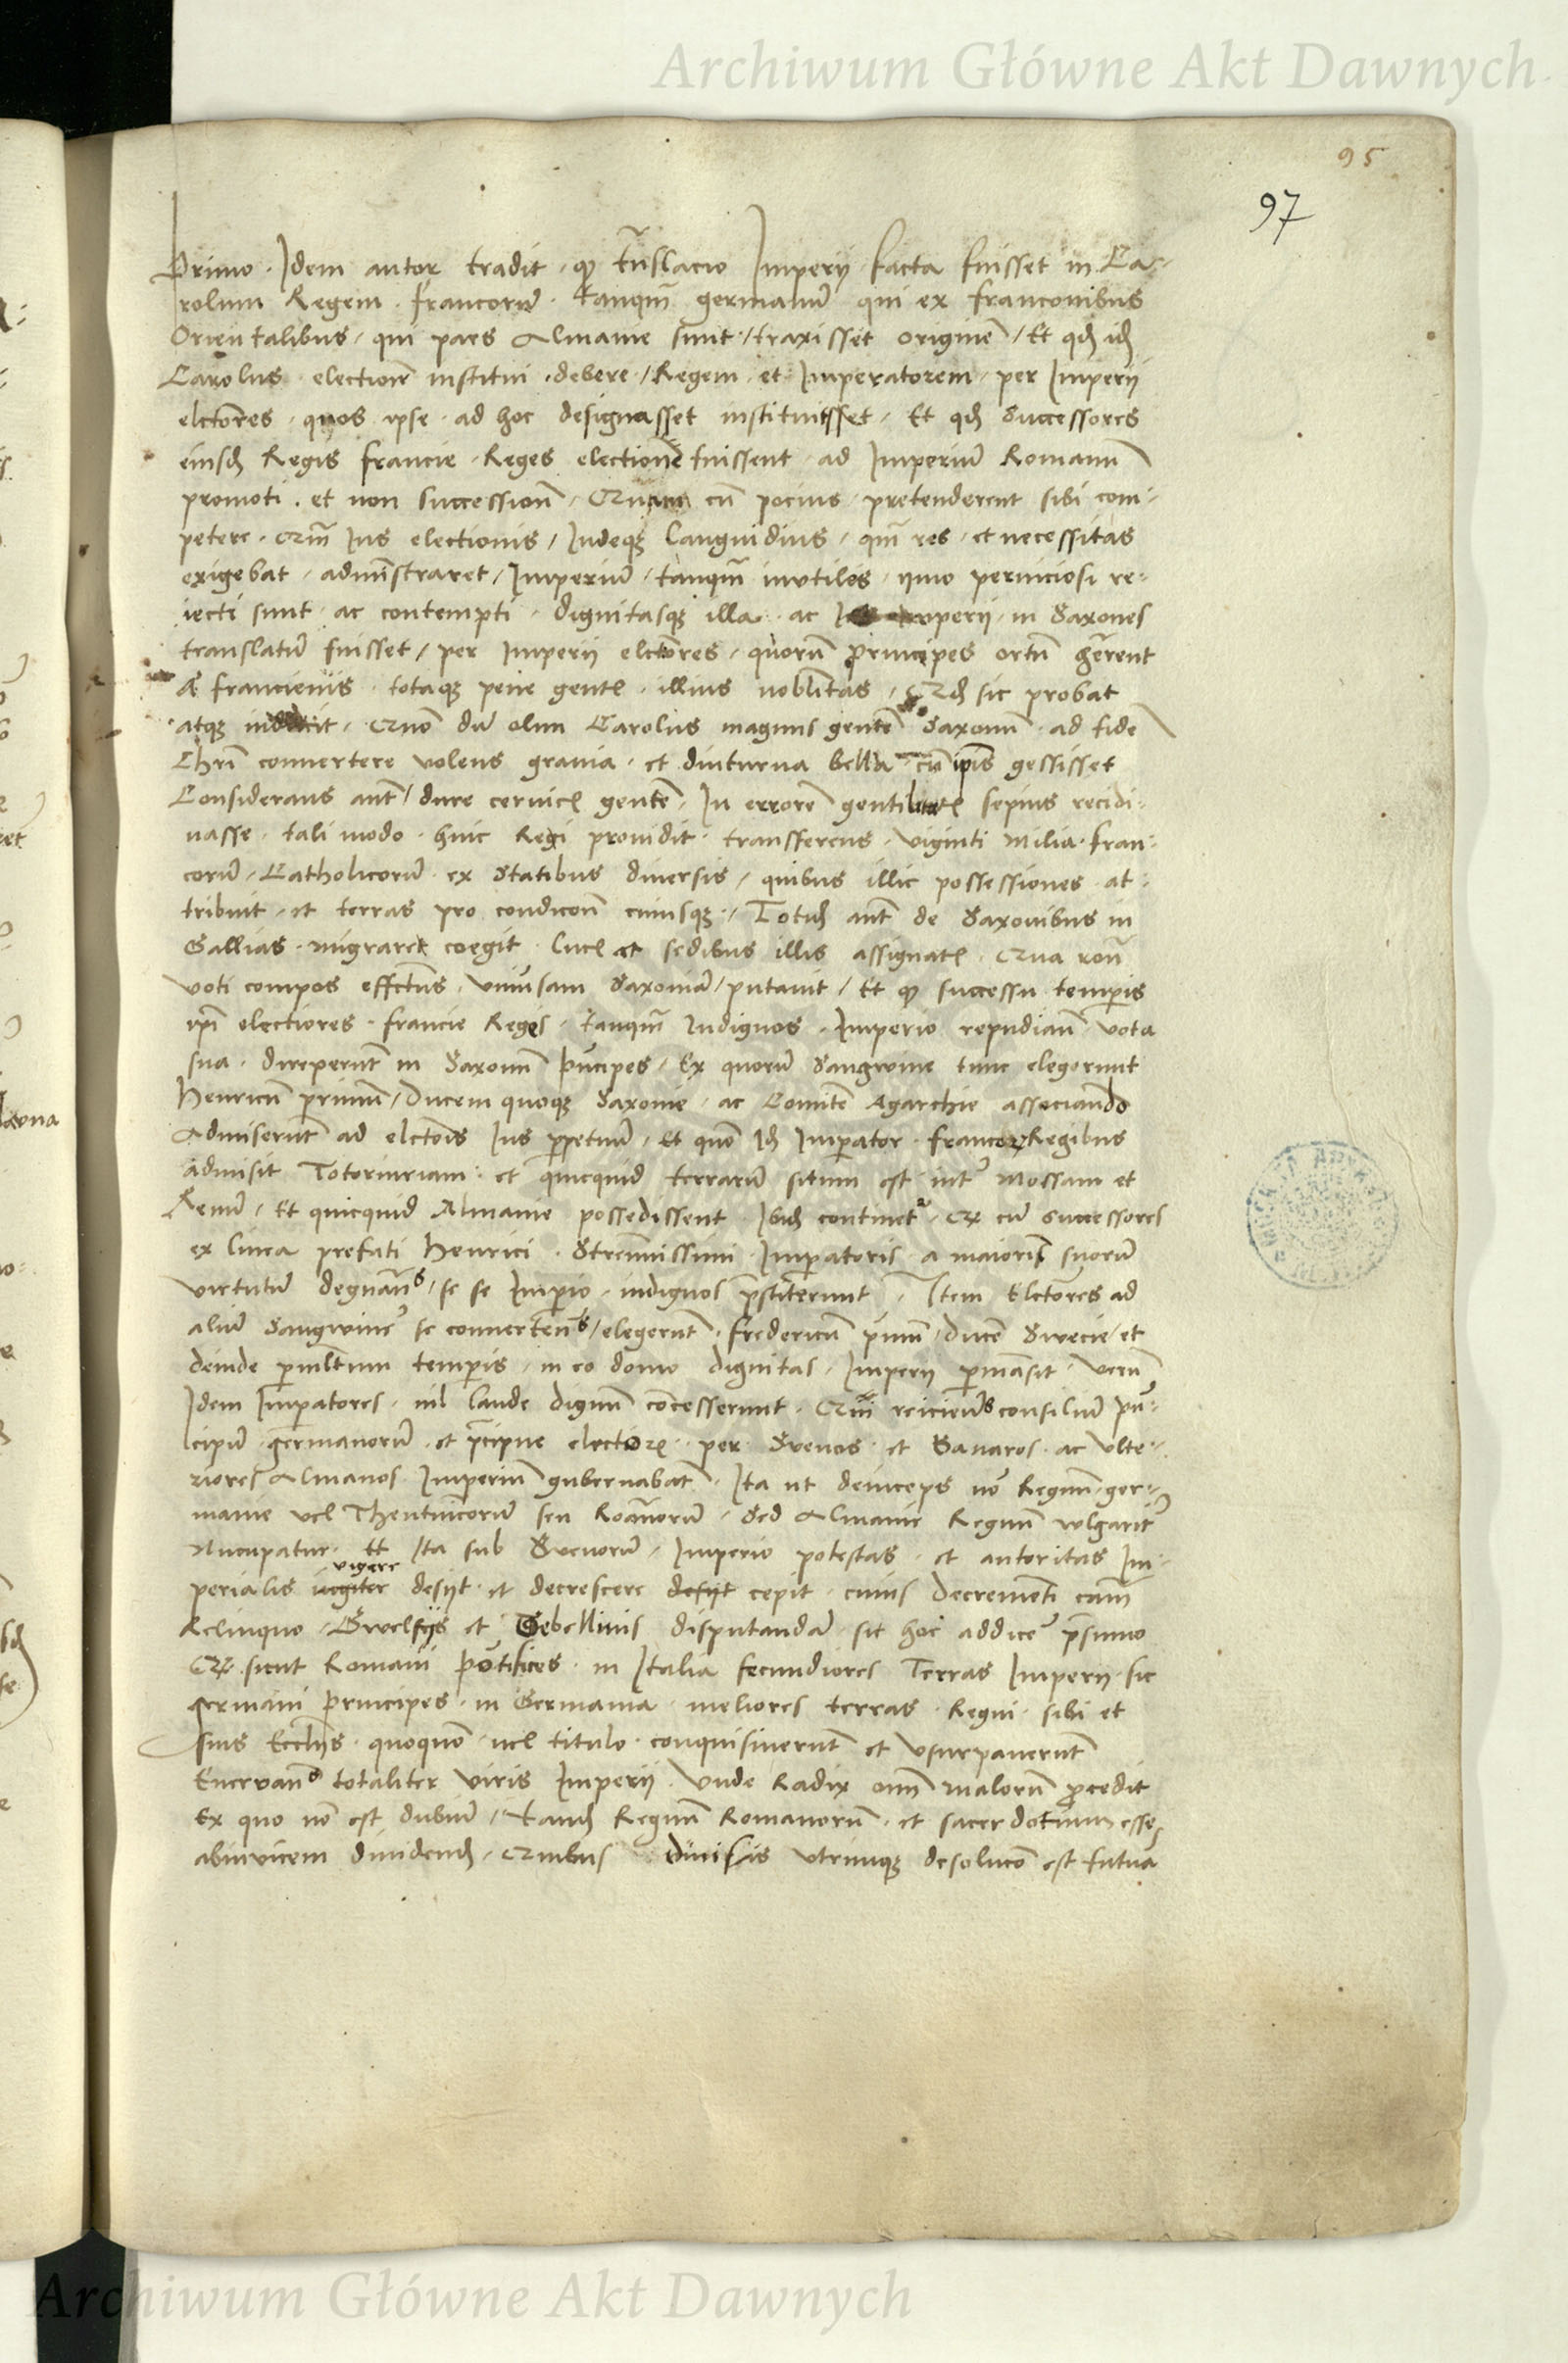 Archiwum Główne Akt Dawnych
95
97
Primo. Idem autor tradit. qđ trāslacio Imperij facta fuisset in Ca-
rolum Regem francorū. tanqm̄ germanū qui ex franconibus
Orientalibus, qui pars Almanie sunt, traxisset originē, Et qđ idē
Carolus electionē institui debere, Regem et Imperatorem per Imperij
elctōres quos ipse ad hoc designasset instituisset, Et qđ Successores
eiusdē Regis francie Reges electione fuissent ad Imperiū Romanū
promoti. et non successionē, cū pocius pretenderent sibi com-
petere. Ius electionis, Indeqz languidius, qm̄ res, et necessitas
exigebat, administraret, Imperiū, tanqm̄ inutiles, ymo perniciosi re-
iecti sunt ac contempti, dignitasqz illa ac Imperij in Saxones
translatū fuisset, per Imperij elctōres, quorū principes ortū gererent
A francienis totaqz pene gentis illius nobilitas, Qđ sic probat
atqz inducit, Quō dū olim Carolus magnus gentē Saxonū ad fidē
Chri convertere volens gravia et diuturna bella cū ipis gessisset
Considerans aut̄ dure cervicis gentē, In errorē gentilitatis sepius recidi-
vasse tali modo huic Regi providit transferens, viginti Milia fran-
corū, Catholicorū ex Statibus diversis, quibus illic possessiones at-
tribuit, et terras pro condicōn cuiusqz, Totidē aut̄ de Saxonibus in
Gallias migraret coegit et sedibus illis assignatis. Qua
voti compos effectus, Saxoniā, putavit, Et qđ successu temporis
ipi electores francie Reges, tanqm̄ Indignos Imperio repudiaū vota
sua direxerūt in Saxonū principes, Ex quorū Sangwine tunc elegerunt
Henricū primū, Ducem quoqz Saxonie, ac Comitē associando
Admiserūt ad elctōis Ius perpetuū, Et quō Idē Imperator francorz Regibus
admisit et quicquid terrarū situm est int̄ Mossam et
Renū, Et quicquid Almanie possedissent Ibidē continet. cū successores
ex linea prefati Henrici Strenuissimi Imperatoris a maioris suorū
virtutū se se Imperio indignos prestiterunt, Item Elctōres ad
aliū Sangwinē se convertentes, elegerūt fredericū primū, Ducē Swecie, et
deinde permultum temporis, in eo domo dignitas, Imperij permansit, Verū
Idem Imperatores, nil laude dignū concesserunt, Qui reicientes consiliū prin-
cipū germanorū et precipue electorz, per Svevos et Bavaros ac ulte-
riores Almanos Imperiū gubernabāt, Ita ut deinceps nō Regnū ger-
manie vel Theutunicorū seu Romanorū, Sed Almanie Regnū vulgarit̄
Nucupatur. Et Ita sub Svevorū, Imperio potestas et autoritas Im-
perialis iugiter vigere desijt et decrescere desijt cepit, cuius Decrementi causā
Relinquo, Gwelfijs et Gebellinis disputandā sit hoc addicē presumo
Qđ sicut Romani pōtifices in Italia fecundiores Terras Imperij sic
germani principes in Germania meliores terras Regni sibi et
suis Ecclijs quoquō vel titulo conquisiverūt et Usurpaverūt
Enervantes totaliter viris Imperij, Unde Radix omn̄ malorū procedit
Ex quo nō est dubiū, Tandē Regnū Romanorū et sacerdotium esse
abinvicem dividendū, Quibus divisis utrimqz desolucō est futura
Archiwum Główne Akt Dawnych